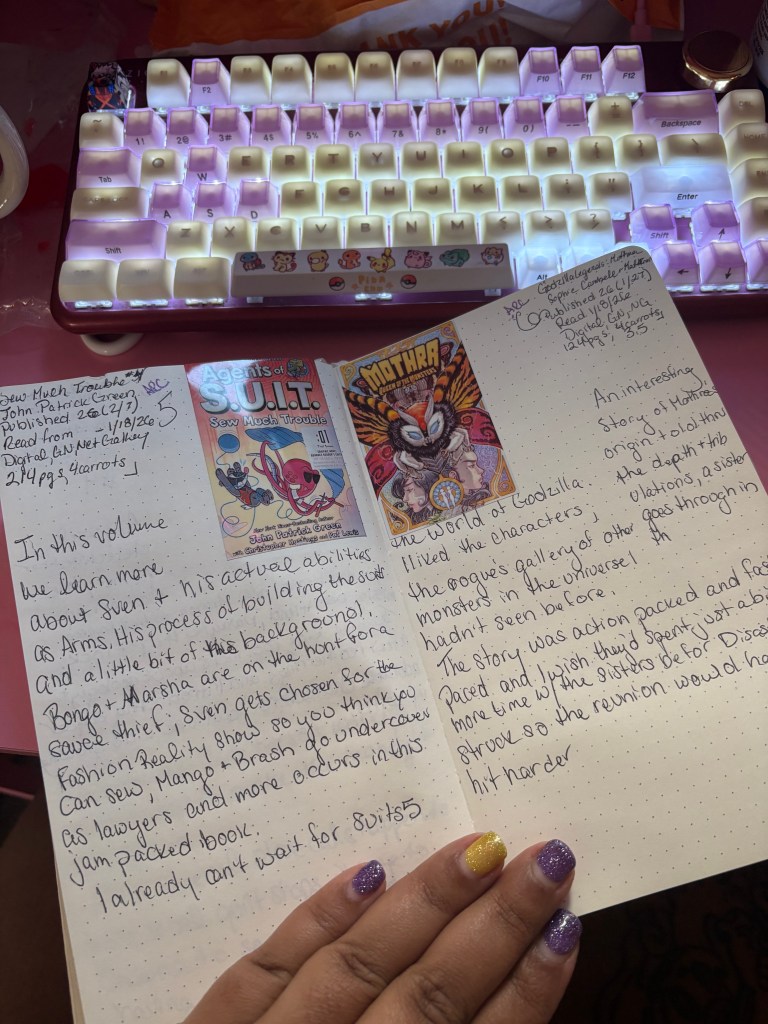 NK YOU
F2
F10
F11
F12
1!
2@
3#
4$
5%
6^
7&
8*
9(
0)
Backspace
Tab
Q
W
E
R
T
Y
U
I
O
P
Enter
A
S
D
F
G
H
J
K
L
Shift
Z
X
C
V
B
N
M
Shift
Alt
Sew Much Trouble #4
John Patrick Green
ARC
Published 26 (2/7)
Read from - 1/18/26
5
Digital, GN, NetGalley
214 pgs, 4 carrots
Agents of
S.U.I.T.
Sew Much Trouble
John Patrick Green
with Christopher Hastings and Pat Lewis
In this volume
we learn more
about Sven + his actual abilities
as Arms. His process of building the suits
and a little bit of background.
Bongo + Marsha are on the hunt for a
sauce thief, Sven gets chosen for the
Fashion Reality Show so you think you
can sew, Mango + Brash go undercover
as lawyers and more occurs in this
jam packed book.
I already can't wait for suits5
ARC
Godzilla Legends: Mothra
Sophie Campbell + Matt
Published 26 (1/27)
Read 1/18/26
Digital, GN, NG
124 pgs, 4 carrots,
3.5
MOTHRA
QUEEN OF THE MONSTERS
An interesting
story of Mothra's
origin + told thru
the depth + trib
ulations, a sister
goes through in
the world of Godzilla.
I liked the characters,
the rogue's gallery of other
monsters in the universe I
hadn't seen before.
The story was action packed and fas
paced and I wish they'd spent just a bi
more time w/ the sisters befor Disas
struck so the reunion would ha
hit harder